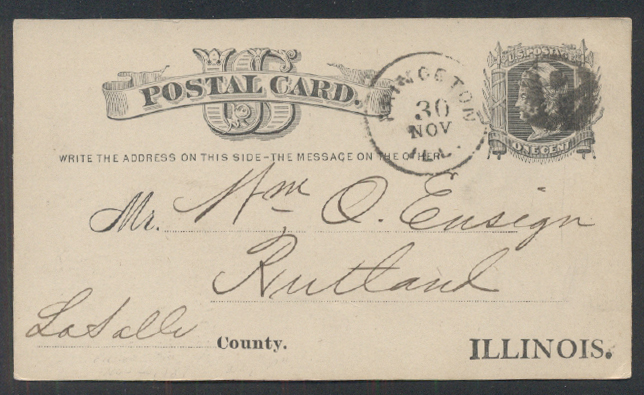 US
POSTAL CARD.
PRINCETON
30
NOV
ILL.
U.S. POSTAGE
ONE CENT
WRITE THE ADDRESS ON THIS SIDE-THE MESSAGE ON THE OTHER
Mr. Wm O. Ensign
Rutland
LaSalle County. ILLINOIS.